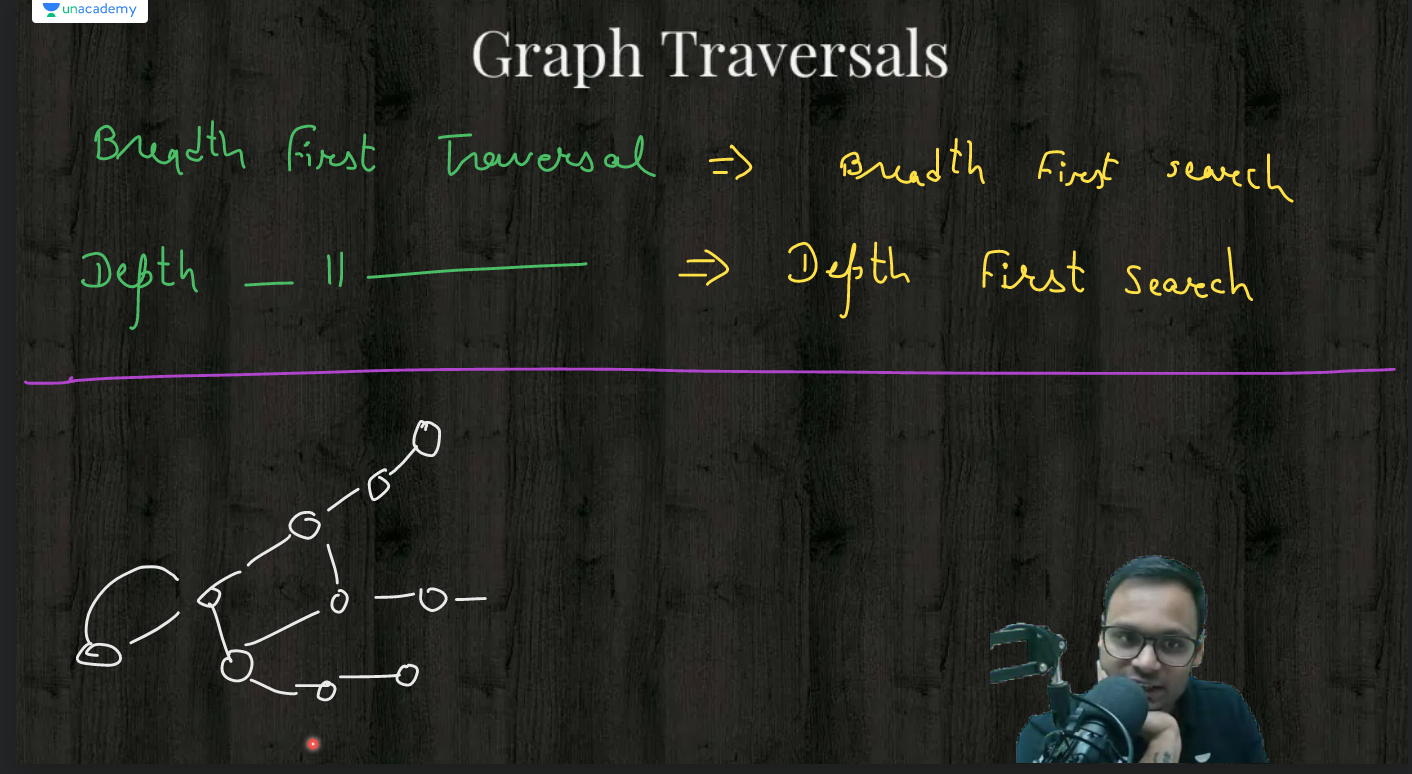 unacademy
Graph Traversals
Breadth First Traversal ⇒ Breadth First search
Depth — 11 ——— ⇒ Depth First Search